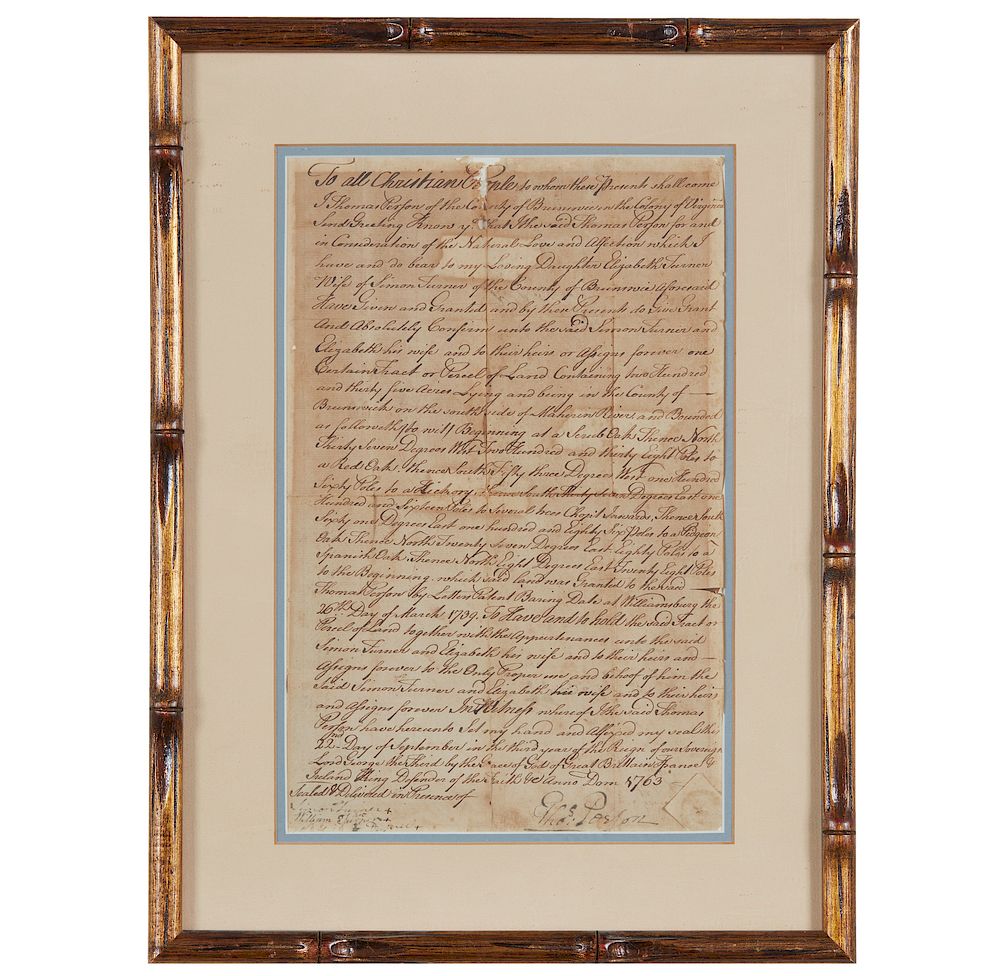 To all Christian People to whom these Presents shall come
I Thomas Person of the County of Brunswic in the Colony of Virginia
Send Greeting Know ye that I the said Thomas Person for and
in Consideration of the Natural Love and Affection which I
have and do bear to my Loving Daughter Elizabeth Turner
Wife of Simon Turner of the County of Brunswic Aforesaid
Have Given and Granted and by these Presents do Give Grant
And Absolutely Confirm unto the said Simon Turner and
Elizabeth his wife and to their heirs or Assigns forever one
Certain Tract or Percel of Land Containing two Hundred
and thirty five Acres Lying and being in the County of —
Brunswick on the south side of Maherin River and Bounded
as followeth (to wit) Beginning at a Scrub Oak Thence North
Thirty Seven Degrees West Two Hundred and thirty Eight Poles to
a Red Oak thence South Fifty three Degrees West one Hundred
Sixty Poles to a Hickory thence South Thirty Seven Degrees East one
Hundred and Sixteen Poles to Several trees Chopt Inwards, Thence South
Sixty one Degrees East one hundred and Eighty Six Poles to a Pidgeon
Oak Thence North Twenty Seven Degrees East Eighty Poles to a
Spanish Oak Thence North Eight Degrees East Twenty Eight Poles
to the Beginning which said land was Granted to the said
Thomas Person by Letters Patent Baring Date at Williamsburg the
26th Day of March 1739. To Have and to hold the said Tract or
Percel of Land together with the Appurtenances unto the said
Simon Turner and Elizabeth his wife and to their heirs and —
Assigns forever to the Only Proper use and behoof of him the
Said Simon Turner and Elizabeth his wife and to their heirs
and Assigns forever In Witness whereof I the said Thomas
Person have hereunto Set my hand and Affixed my seal this
22nd Day of September in the third year of the Reign of our Sovereign
Lord George the Third by the Grace of God of Great Brittain France &
Ireland King Defender of the Faith &c Anno Dom 1763
Sealed & Delivered in Presence of
Thos. Person
William